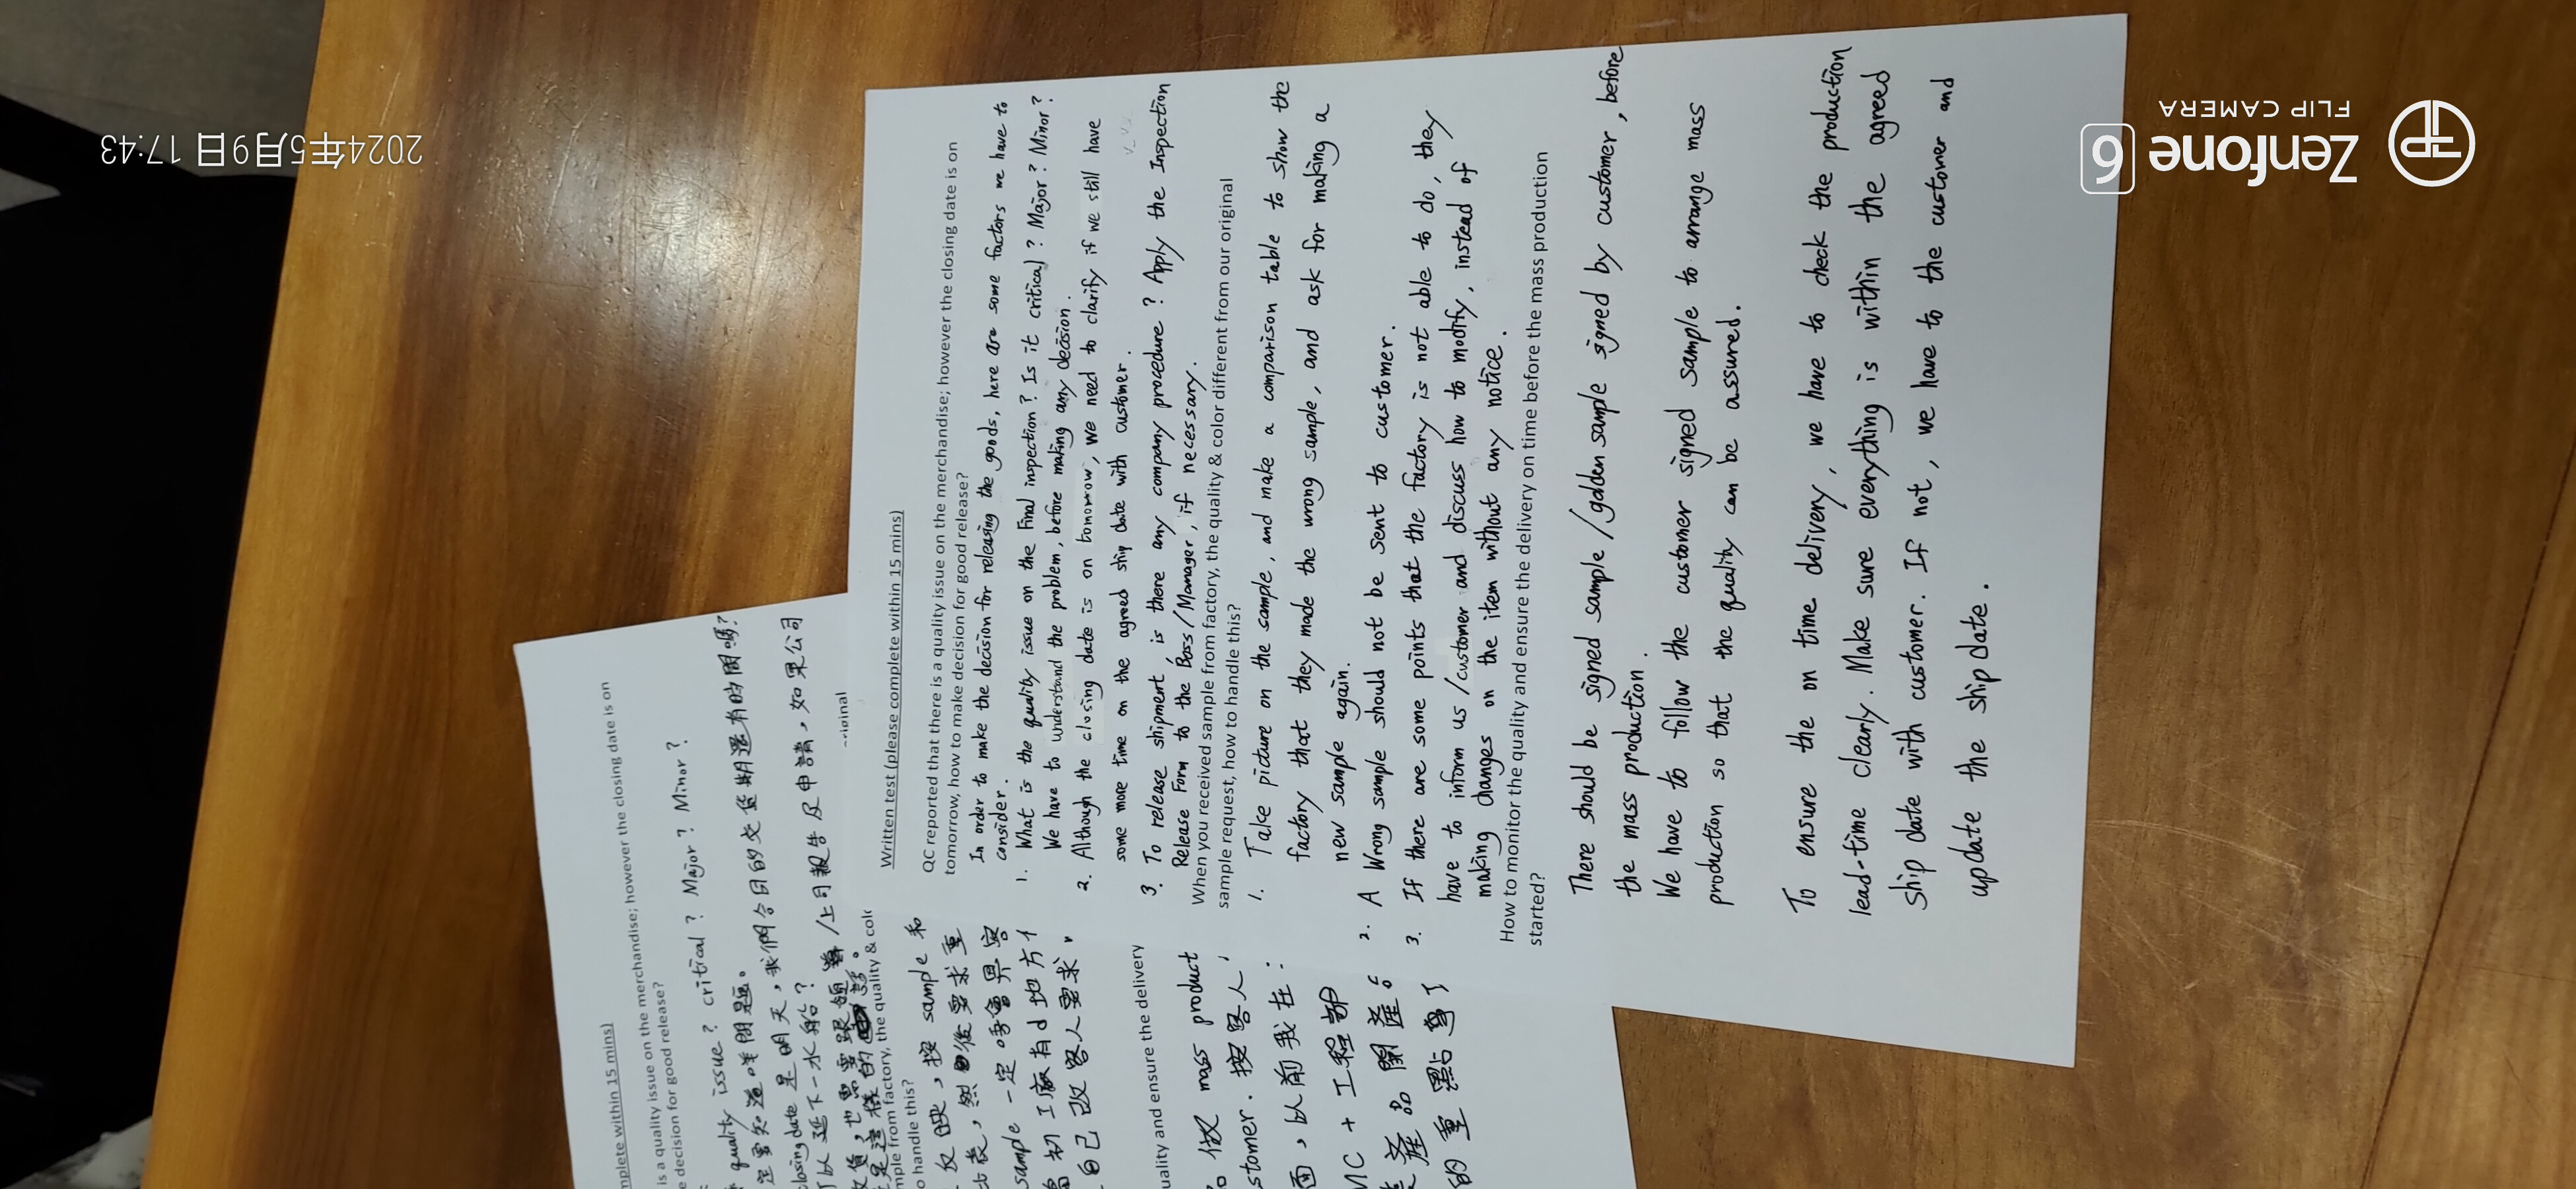 Written test (please complete within 15 mins)
QC reported that there is a quality issue on the merchandise; however the closing date is on
tomorrow, how to make decision for good release?
In order to make the decision for releasing the goods, here are some factors we have to
consider.
1. What is the quality issue on the Final inspection? Is it critical? Major? Minor?
We have to understand the problem, before making any decision.
2. Although the closing date is on tomorrow, we need to clarify if we still have
some more time on the agreed ship date with customer.
3. To release shipment, is there any company procedure? Apply the Inspection
Release Form to the Boss/Manager, if necessary.
When you received sample from factory, the quality & color different from our original
sample request, how to handle this?
1. Take picture on the sample, and make a comparison table to show the
factory that they made the wrong sample, and ask for making a
new sample again.
2. A Wrong sample should not be sent to customer.
3. If there are some points that the factory is not able to do, they
have to inform us/customer and discuss how to modify, instead of
making changes on the item without any notice.
How to monitor the quality and ensure the delivery on time before the mass production
started?
There should be signed sample/golden sample signed by customer, before
the mass production.
We have to follow the customer signed sample to arrange mass
production so that the quality can be assured.
To ensure the on time delivery, we have to check the production
lead-time clearly. Make sure everything is within the agreed
ship date with customer. If not, we have to the customer and
update the ship date.
mplete within 15 mins)
is a quality issue on the merchandise; however the closing date is on
e decision for good release?
quality issue? critical? Major? Minor?
定要知道咩問題。
closing date 是明天,我們今日的交貨期還有時間嗎?
可以延下一水船?
/上司報告及申請,如果公司
original
mple from factory, the quality & colo
o handle this?
反映,按 sample 和
比表,然後要求重
sample 一定唔會畀客
工廠有d地方
自己改客人要求
uality and ensure the delivery
做 mass product
stomer. 按客人
面,以前我在:
MC + 工程部
產品開產。
的重點
2024年5月9日 17:43
Zenfone 6
FLIP CAMERA